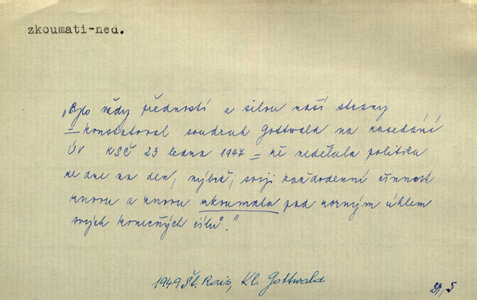 zkoumati-ned.
„Bylo vždy předností a silou naší strany
= konstatoval soudruh Gottwald na zasedání
ÚV KSČ 23 ledna 1947 = že nedělala politiku
ze dne na den, nýbrž, svoji každodenní činnost
znovu a znovu zkoumala pod zorným úhlem
svých konečných cílů."
1949 Št. Rais, Kl. Gottwald
29, 5